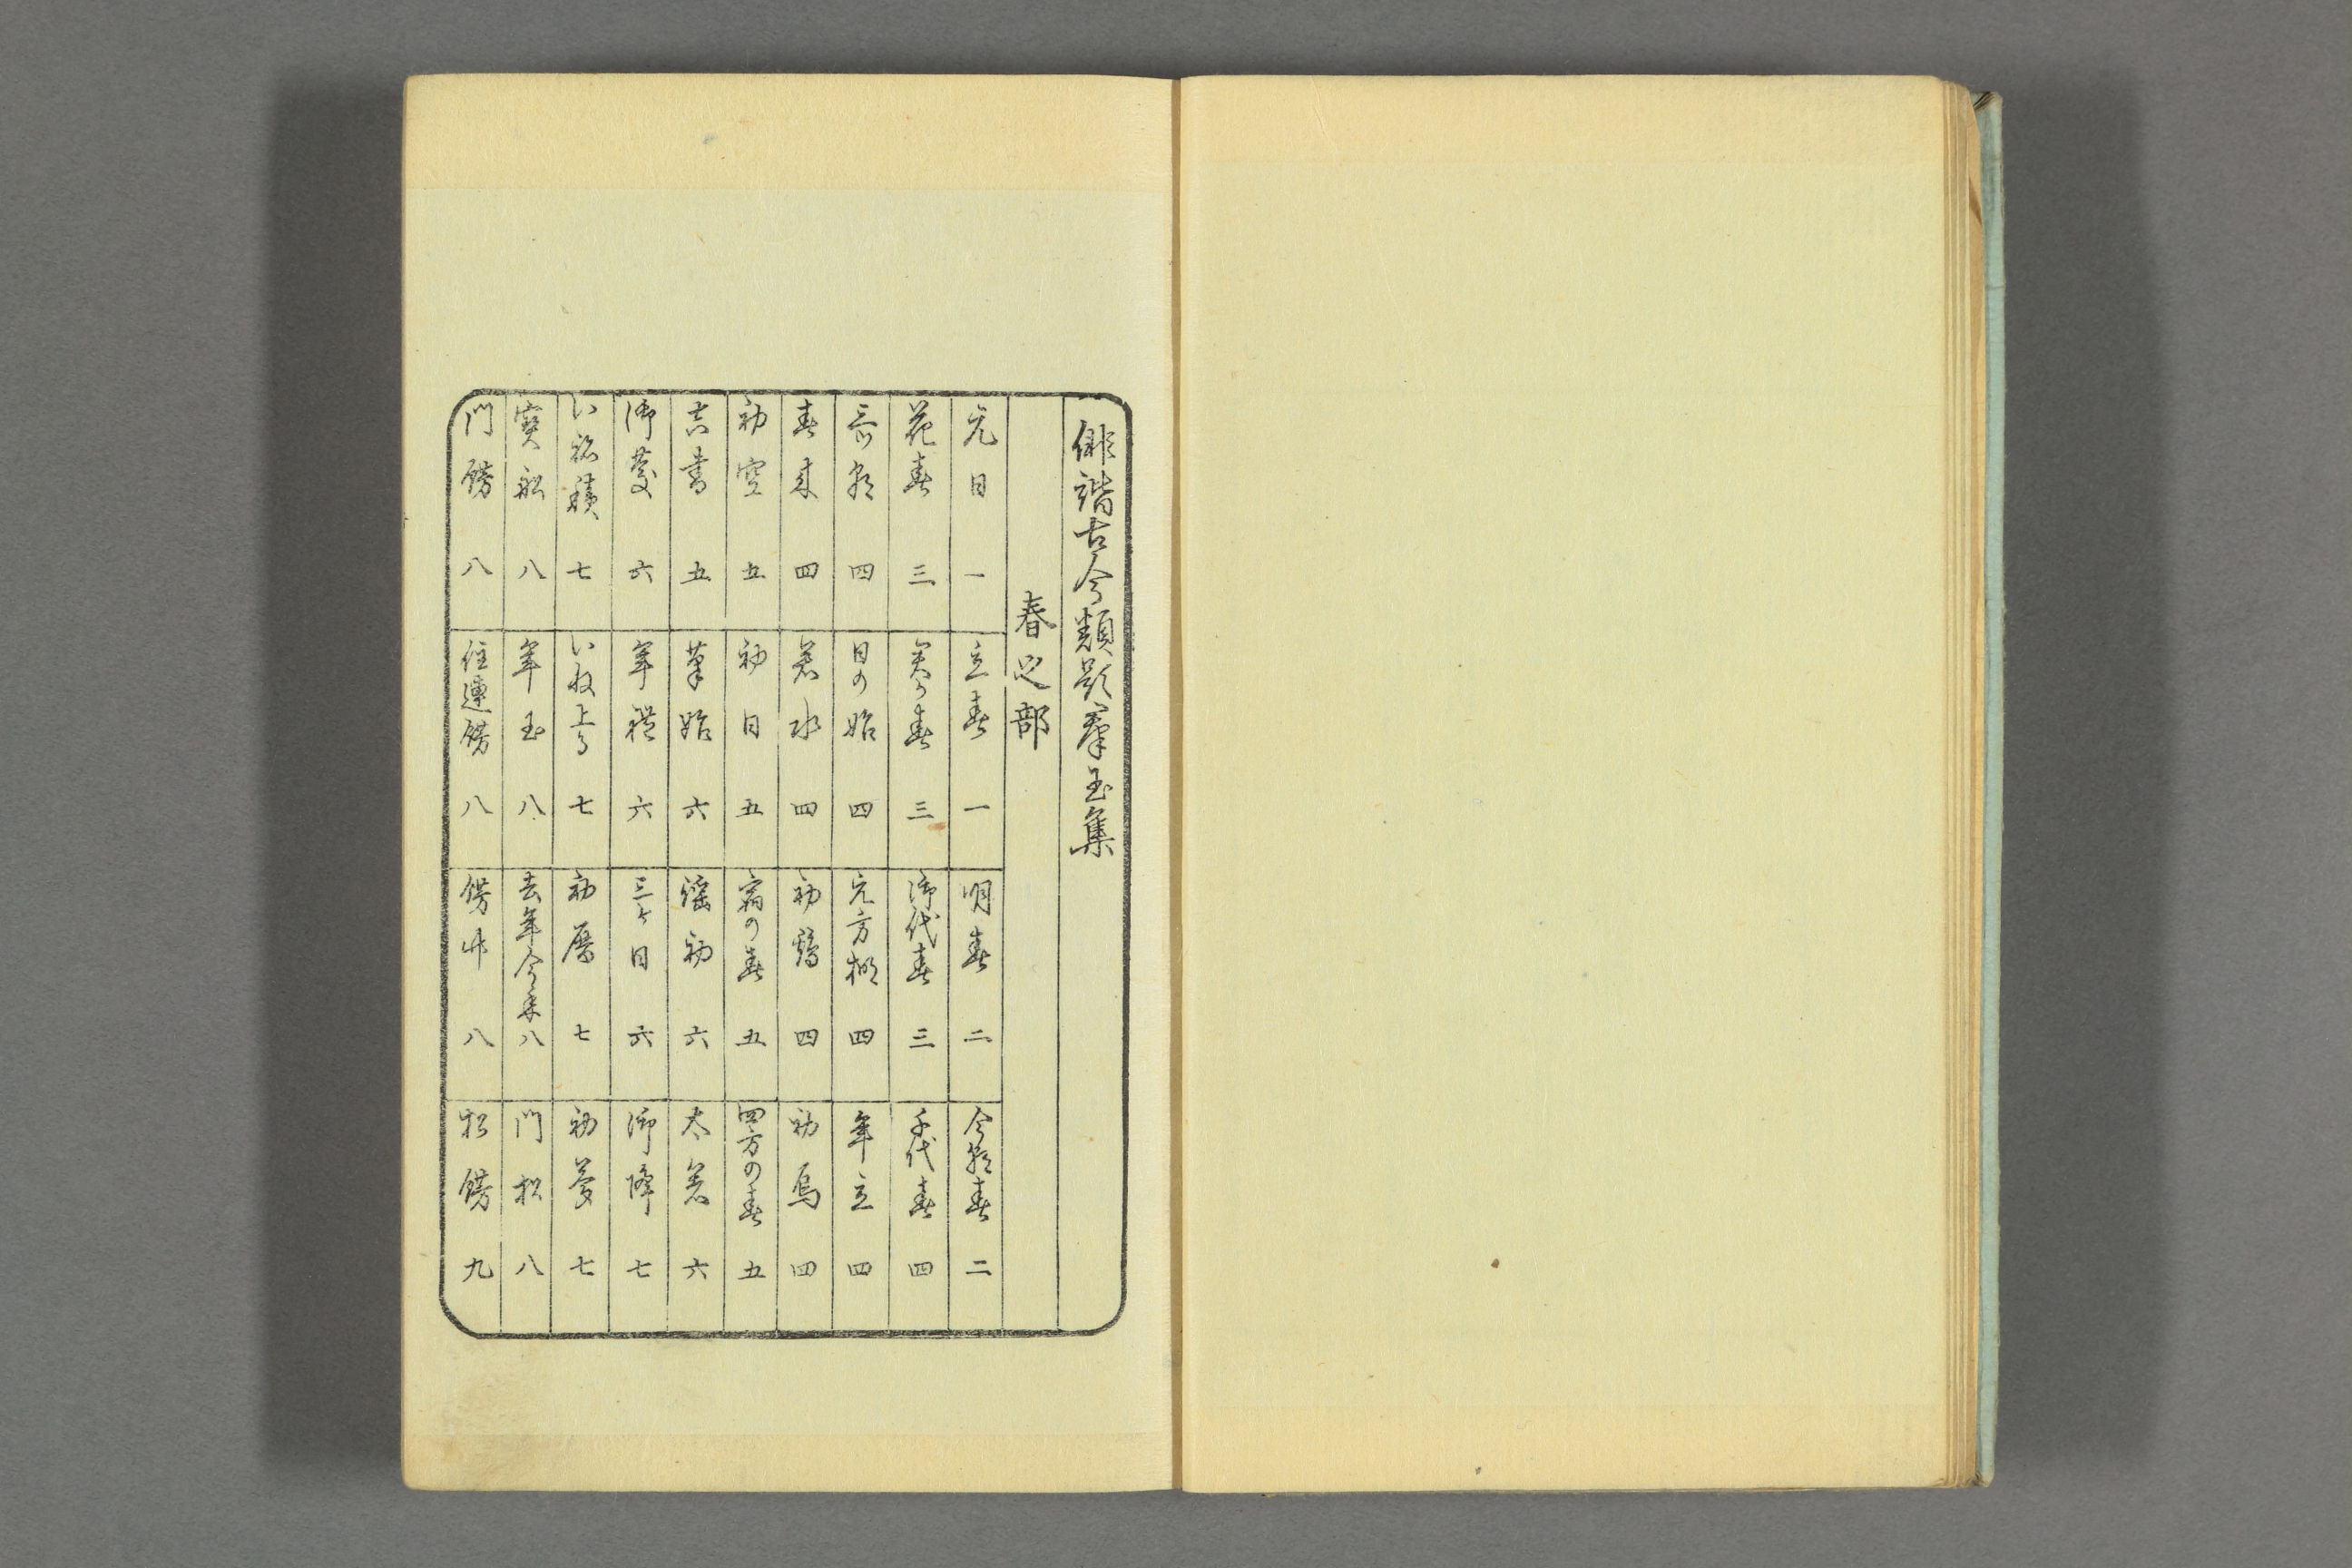 俳諧古今類題羣玉集
春之部
元日 一 立春 一 明春 二 今朝春 二
花春 三 君か春 三 御代春 三 千代春 四
朝 四 日の始 四 元方棚 四 年立 四
春来 四 若水 四 初鶏 四 初烏 四
初空 五 初日 五 宿の春 五 四方の春 五
吉書 五 筆始 六 謡初 六 太箸 六
御慶 六 年禮 六 三ケ日 六 御降 七
い祢積 七 い祢上る 七 初暦 七 初夢 七
寳舩 八 年玉 八 去年今年 八 門松 八
門餝 八 注連餝 八 餝竹 八 松餝 九